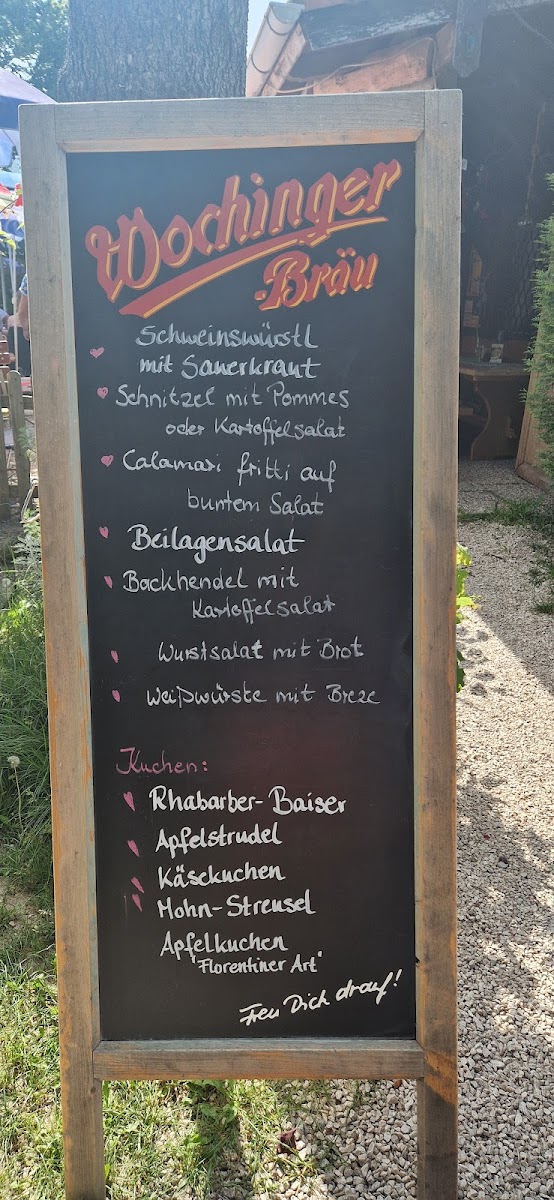 Wochinger
-Bräu
Schweinswürstl
mit Sauerkraut
Schnitzel mit Pommes
oder Kartoffelsalat
Calamari fritti auf
buntem Salat
Beilagensalat
Backhendel mit
Kartoffelsalat
Wurstsalat mit Brot
Weißwürste mit Breze
Kuchen:
Rhabarber-Baiser
Apfelstrudel
Käsekuchen
Mohn-Streusel
Apfelkuchen
"Florentiner Art"
Freu Dich drauf!